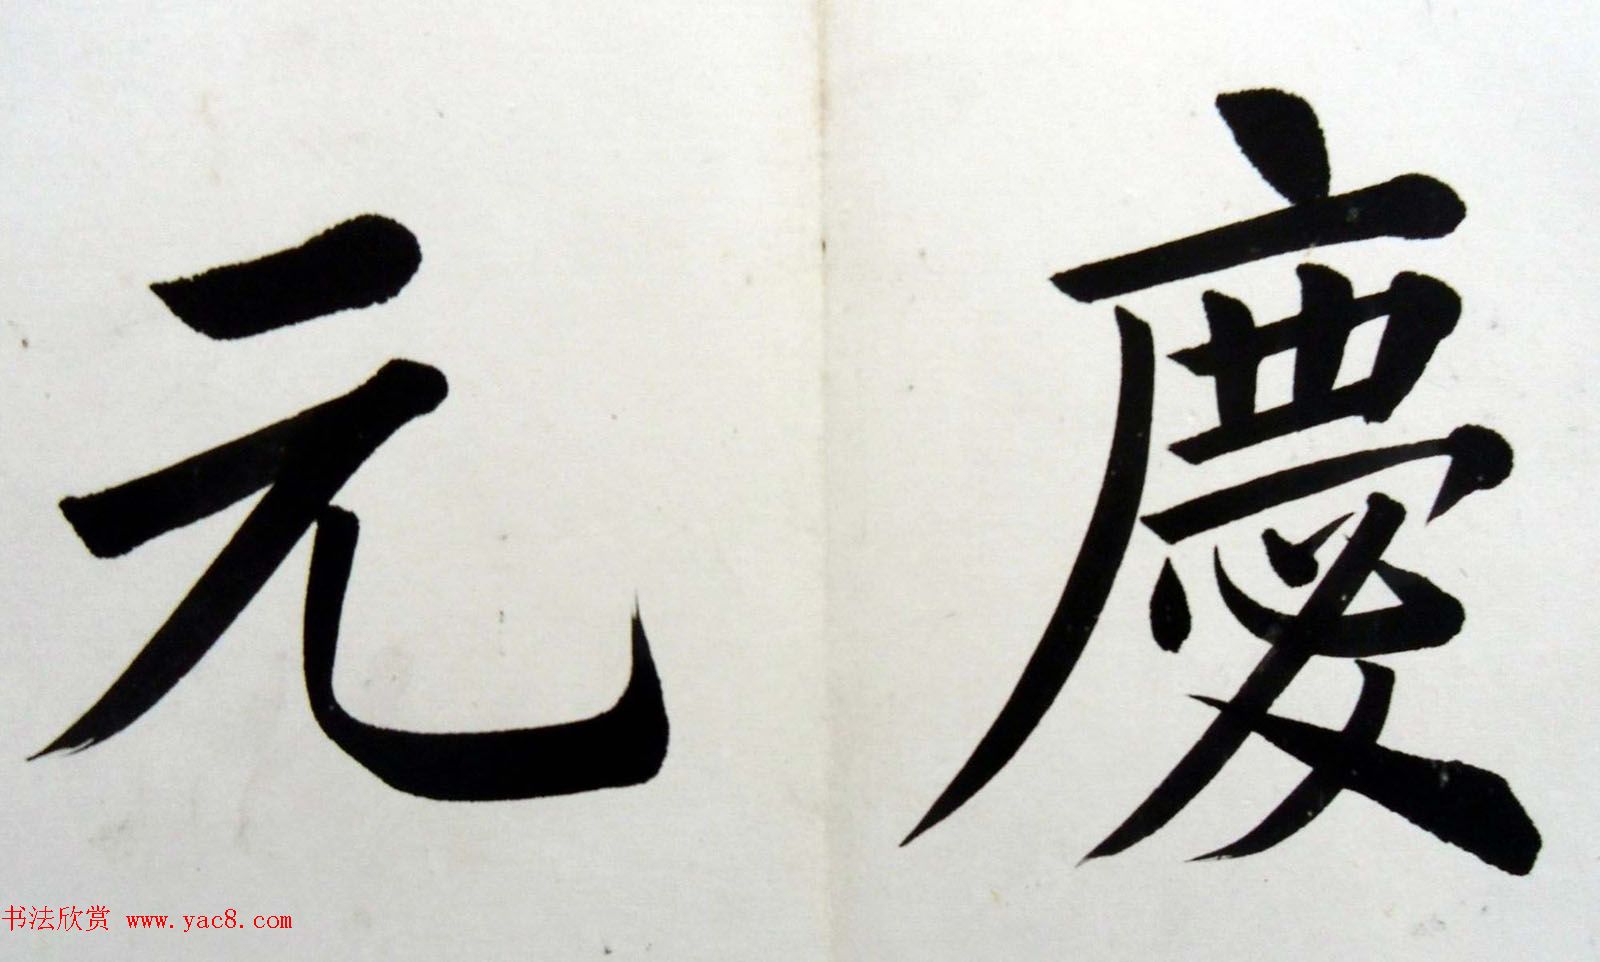 慶元
书法欣赏 www.yac8.com